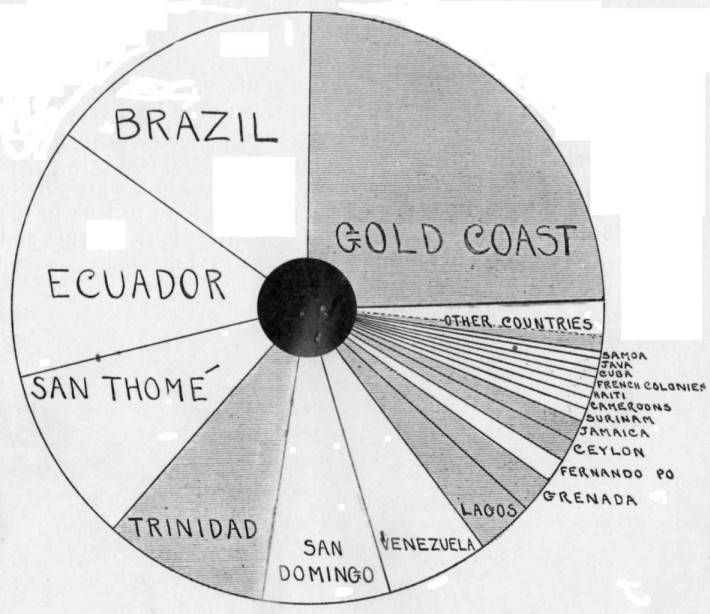 BRAZIL
GOLD COAST
ECUADOR
OTHER COUNTRIES
SAMOA
JAVA
CUBA
FRENCH COLONIES
HAITI
CAMEROONS
SURINAM
JAMAICA
CEYLON
FERNANDO PO
GRENADA
SAN THOMÉ
TRINIDAD
SAN
DOMINGO
VENEZUELA
LAGOS